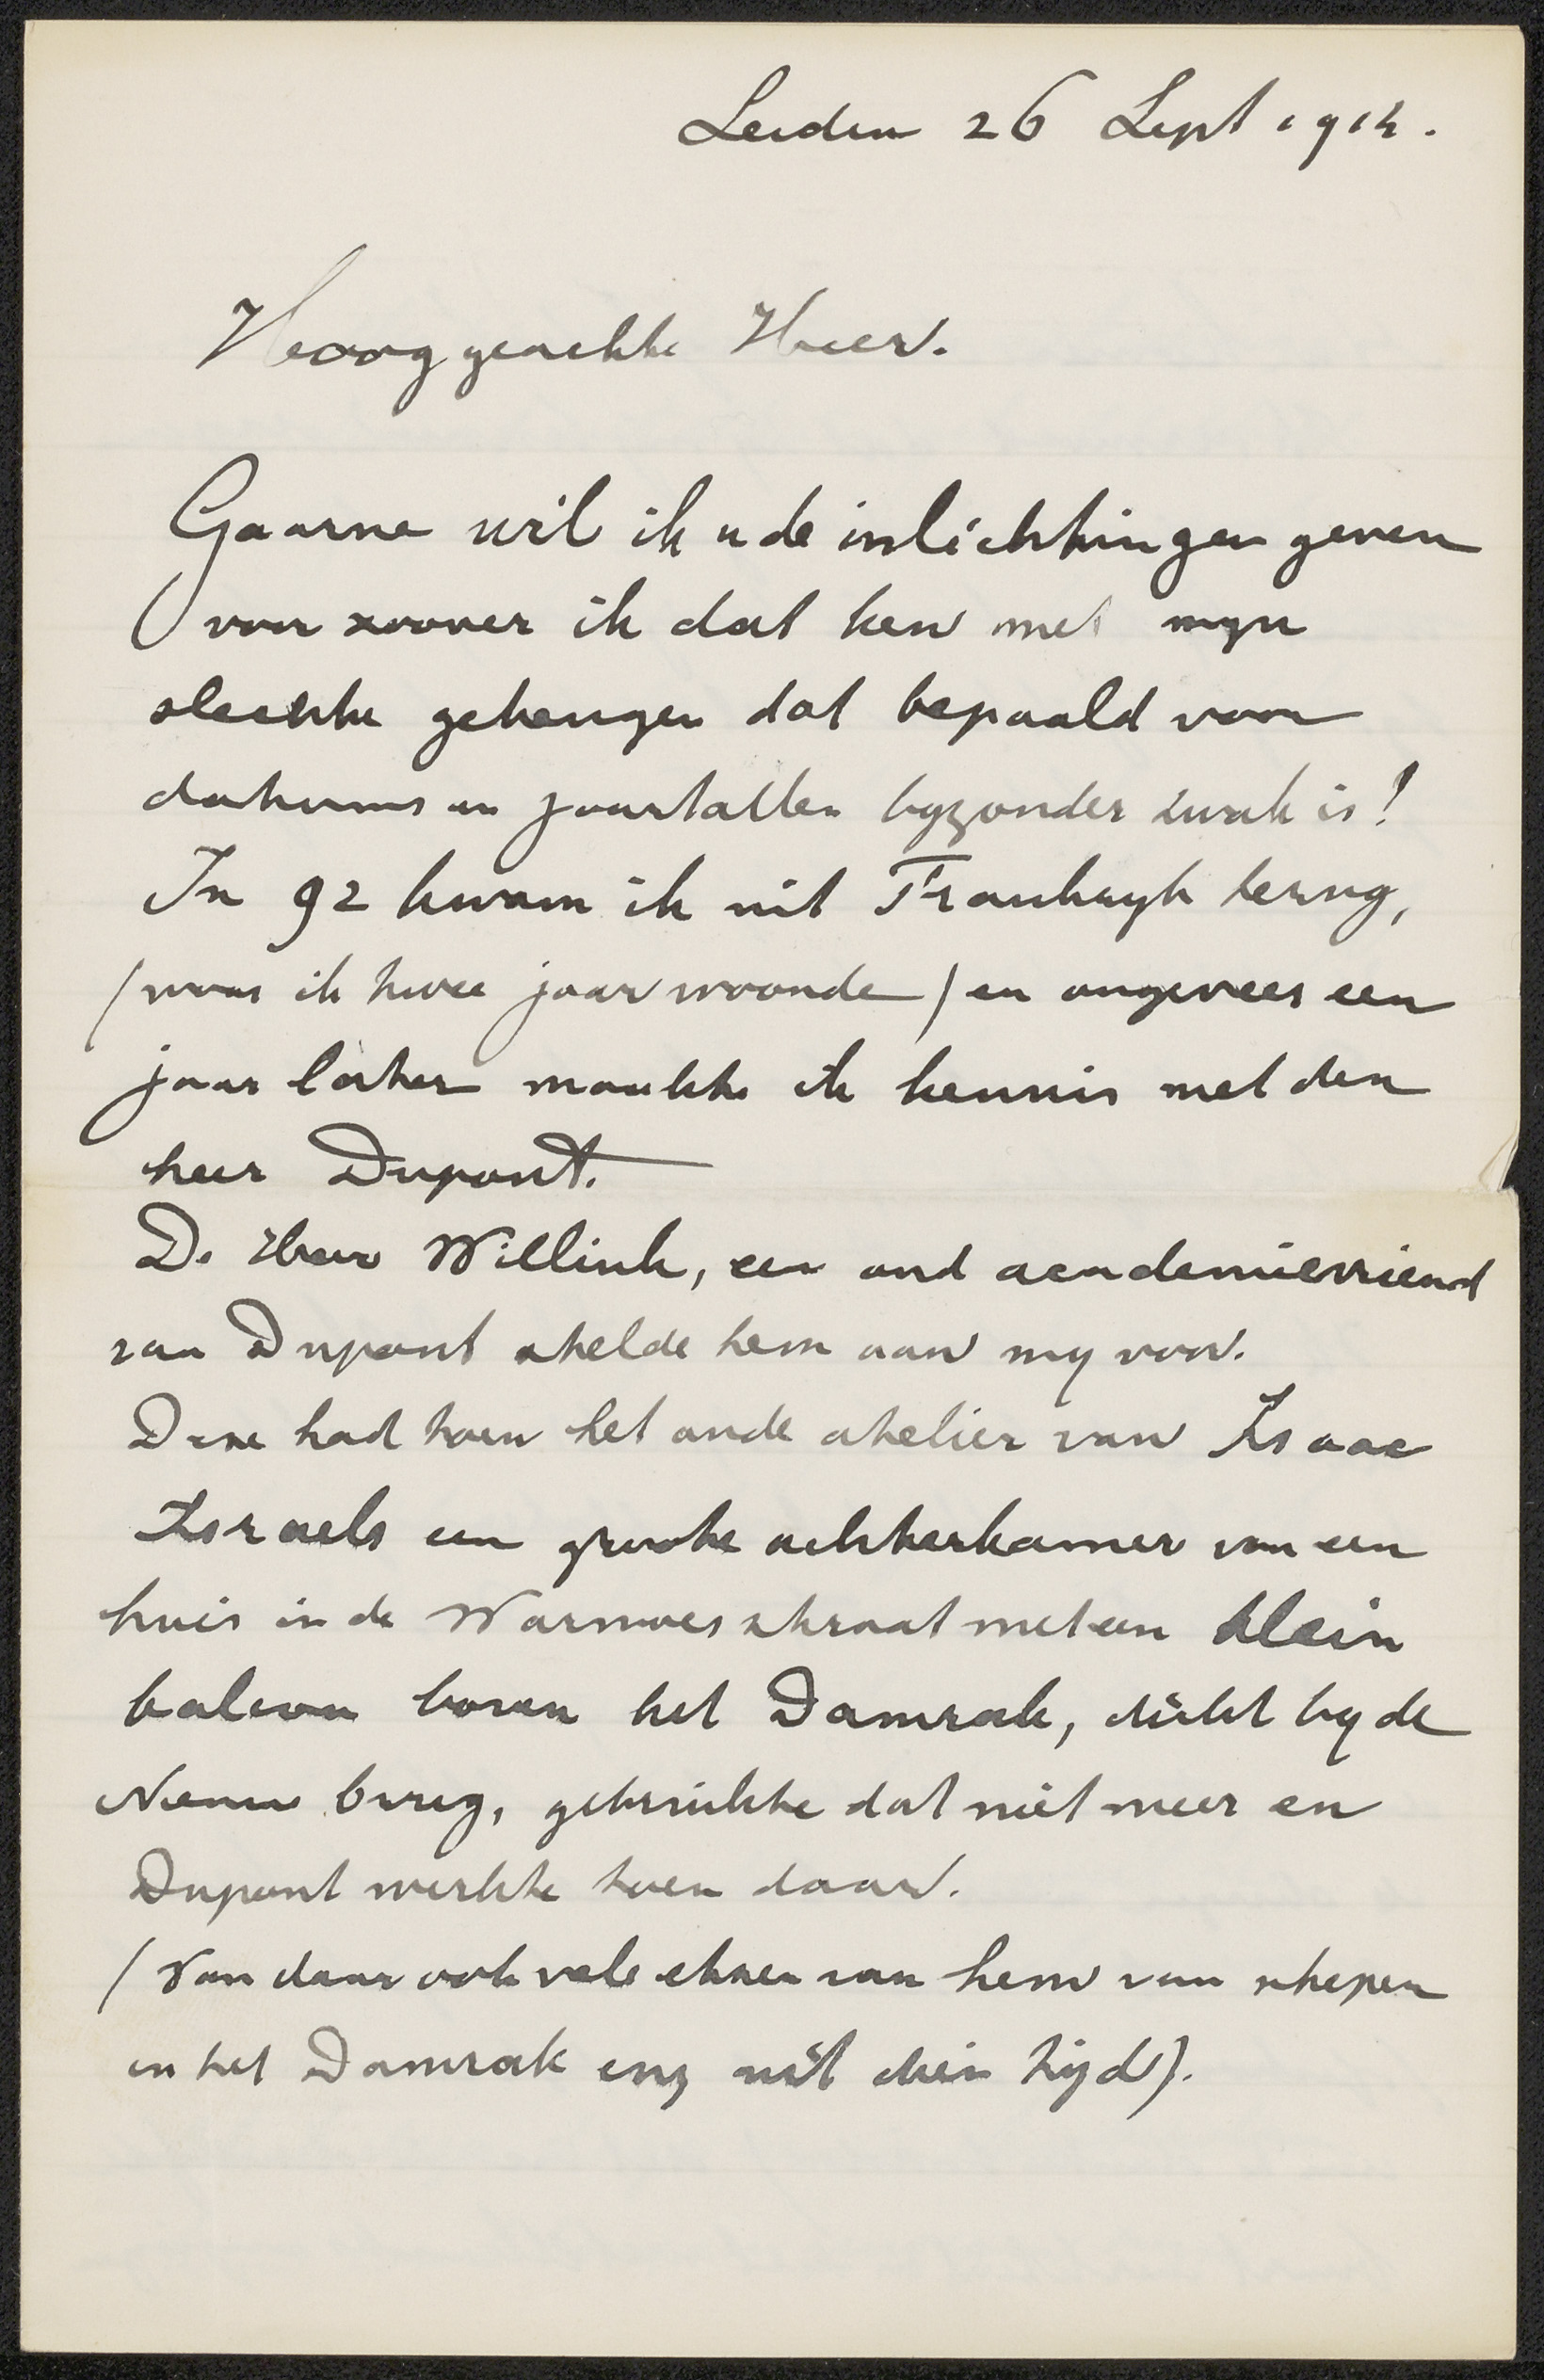 Leiden 26 Sept 1912.
Hooggeachte Heer.
Gaarne wil ik u de inlichtingen geven
voor zoover ik dat ken met myn
slechte geheugen dat bepaald voor
datums en jaartallen byzonder zwak is!
In 92 kwam ik uit Frankryk terug,
(waar ik twee jaar woonde) en ongeveer een
jaar later maakte ik kennis met den
heer Dupont.
De Heer Willink, een oud academievriend
van Dupont stelde hem aan my voor.
Deze had toen het oude atelier van Isaac
Israels een groote achterkamer van een
huis in de Warmoesstraat met een klein
balcon boven het Damrak, dicht by de
Nieuwe brug, gebruikte dat niet meer en
Dupont werkte toen daar.
(Van daar ook vele etsen van hem van schepen
in het Damrak enz uit dien tijd).